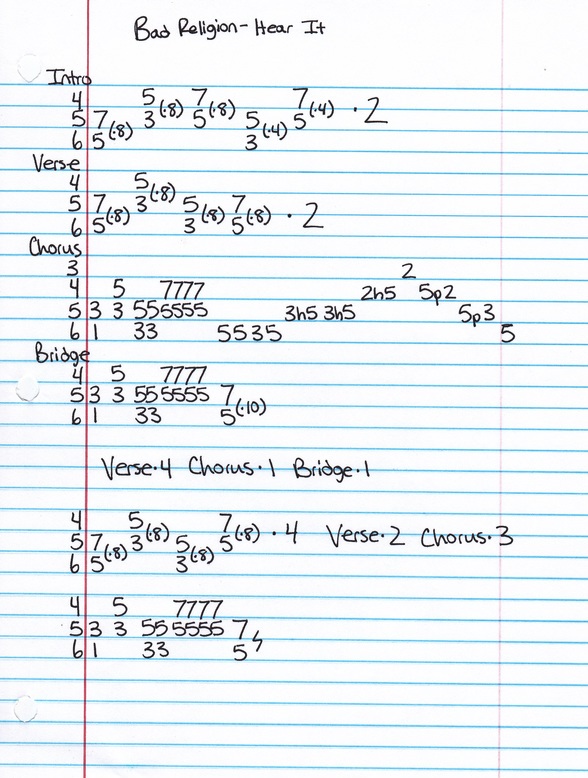 Bad Religion - Hear It
Intro
4 5(·8) 7(·8) 7(·4) · 2
5 7(·8) 3 5 5(·4) 5
6 5 3
Verse
4 5(·8)
5 7(·8) 3 5(·8) 7(·8) · 2
6 5 3 5
Chorus
3 2
4 5 7777 2h5 5p2
5 3 3 555555 3h5 3h5 5p3
6 1 33 5535 5
Bridge
4 5 7777
5 3 3 555555 7(·10)
6 1 33 5
Verse·4 Chorus·1 Bridge·1
4 5(·8) 7(·8) · 4 Verse·2 Chorus·3
5 7(·8) 3 5(·8) 5
6 5 3
4 5 7777
5 3 3 555555 7
6 1 33 5